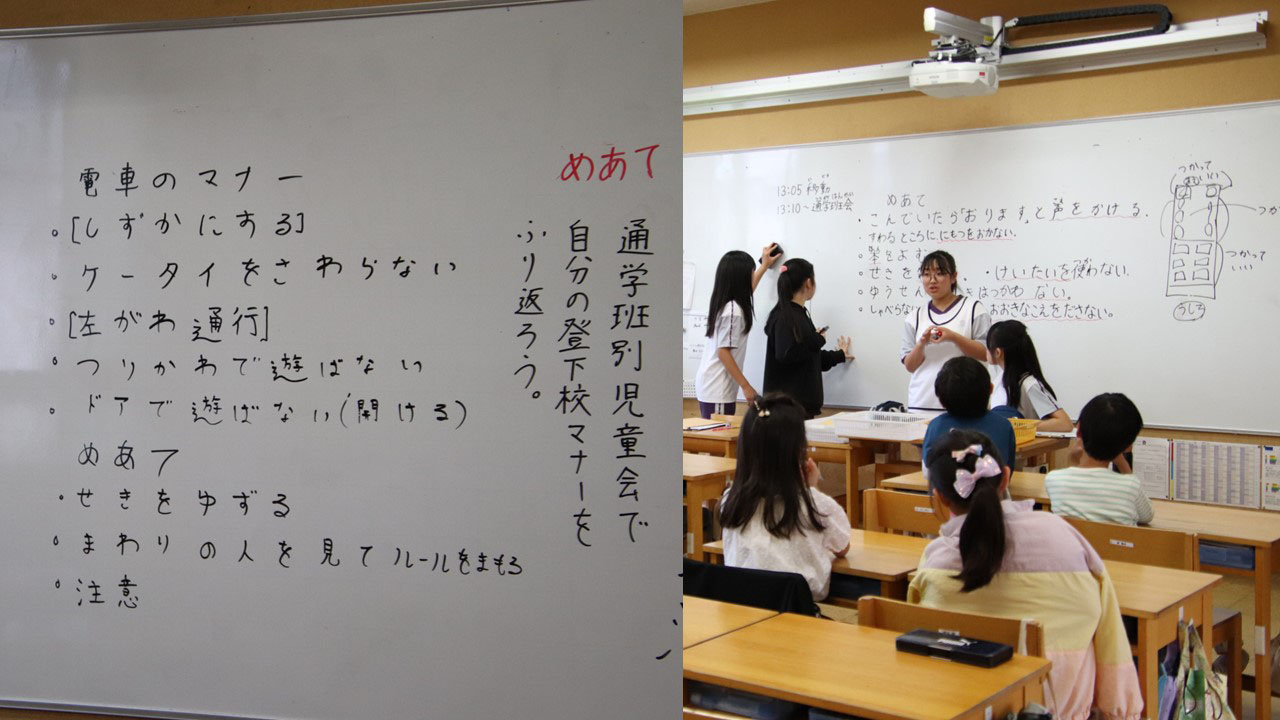 めあて
通学班別児童会で
自分の登下校マナーを
ふり返ろう。
電車のマナー
・[しずかにする]
・ケータイをさわらない
・[左がわ通行]
・つりかわで遊ばない
・ドアで遊ばない(開ける)
めあて
・せきをゆずる
・まわりの人を見てルールをまもる
・注意
13:05 移動
13:10～通学班会
めあて
・こんでいたら「おります」と声をかける.
・すわるところににもつをおかない.
・せきを
・けいたいを使わない.
・ゆうせん
はつかわない。
・しゃべらない
おおきなこえをださない。
つかって
いい
つか
つかって
いい
うしろ